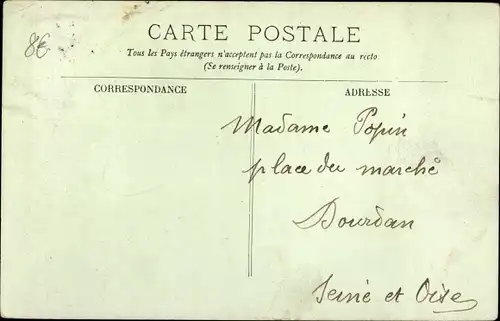 8€
CARTE POSTALE
Tous les Pays étrangers n'acceptent pas la Correspondance au recto
(Se renseigner à la Poste).
CORRESPONDANCE
ADRESSE
Madame Popin
place du marché
Dourdan
Seine et Oise